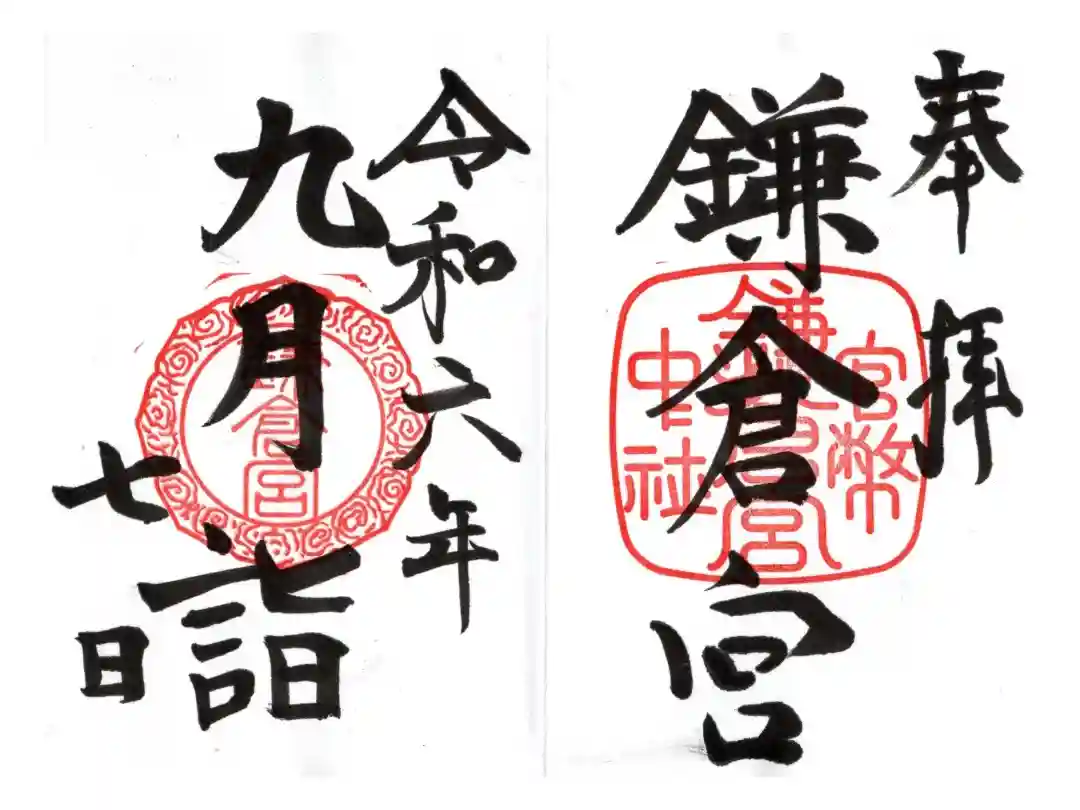 奉拝
鎌倉宮
官幣
鎌倉宮
中社
令和六年
九月詣
鎌倉宮
七日